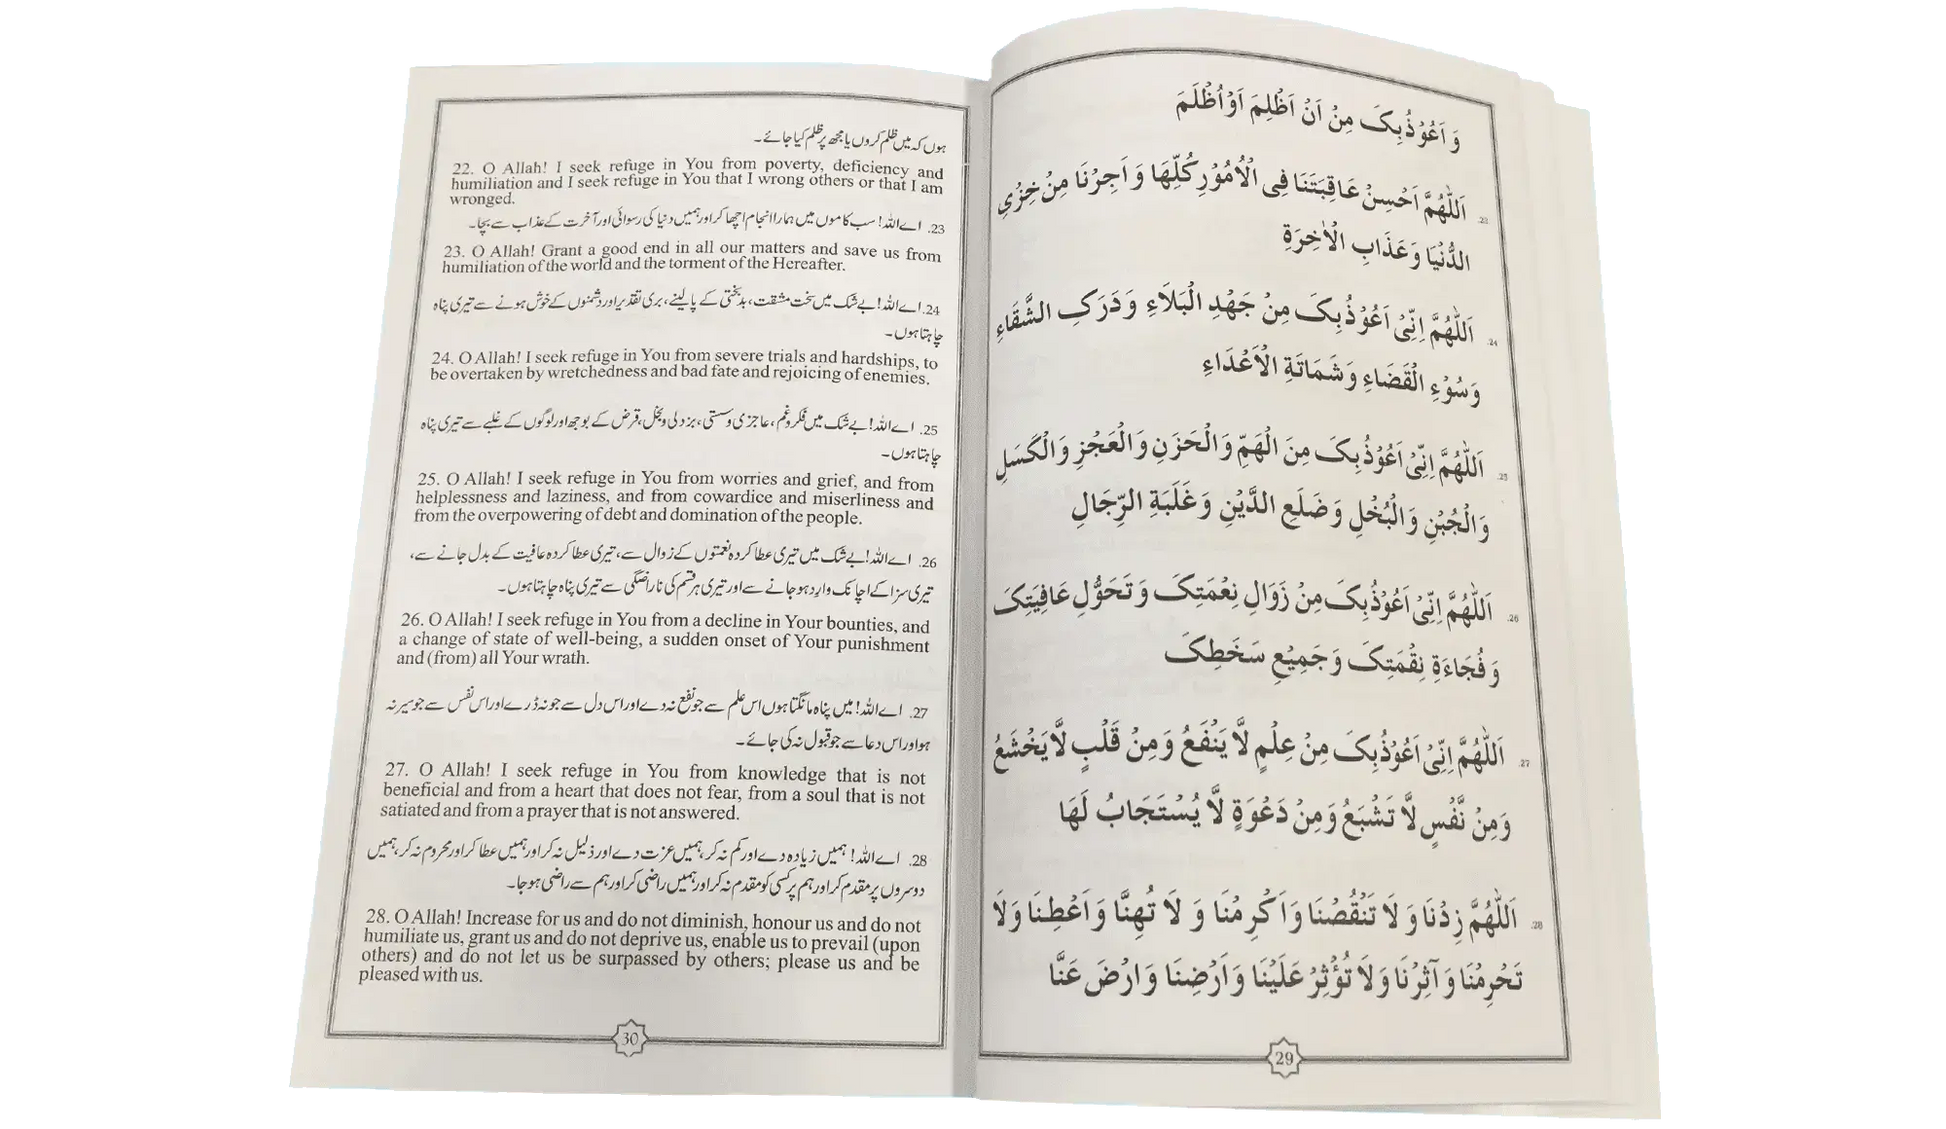 وَ اَعُوْذُبِکَ مِنْ اَنْ اَظْلِمَ اَوْ اُظْلَمَ
23. اَللّٰهُمَّ اَحْسِنْ عَاقِبَتَنَا فِی الْاُمُوْرِ کُلِّهَا وَ اَجِرْنَا مِنْ خِزْیِ
الدُّنْیَا وَ عَذَابِ الْاٰخِرَةِ
24. اَللّٰهُمَّ اِنِّیْ اَعُوْذُبِکَ مِنْ جَهْدِ الْبَلَاءِ وَ دَرَکِ الشَّقَاءِ
وَ سُوْءِ الْقَضَاءِ وَ شَمَاتَةِ الْاَعْدَاءِ
25. اَللّٰهُمَّ اِنِّیْ اَعُوْذُبِکَ مِنَ الْهَمِّ وَ الْحَزَنِ وَ الْعَجْزِ وَ الْکَسَلِ
وَ الْجُبْنِ وَ الْبُخْلِ وَ ضَلَعِ الدَّیْنِ وَ غَلَبَةِ الرِّجَالِ
26. اَللّٰهُمَّ اِنِّیْ اَعُوْذُبِکَ مِنْ زَوَالِ نِعْمَتِکَ وَ تَحَوُّلِ عَافِیَتِکَ
وَ فُجَاءَةِ نِقْمَتِکَ وَ جَمِیْعِ سَخَطِکَ
27. اَللّٰهُمَّ اِنِّیْ اَعُوْذُبِکَ مِنْ عِلْمٍ لَّا یَنْفَعُ وَ مِنْ قَلْبٍ لَّا یَخْشَعُ
وَ مِنْ نَّفْسٍ لَّا تَشْبَعُ وَ مِنْ دَعْوَةٍ لَّا یُسْتَجَابُ لَهَا
28. اَللّٰهُمَّ زِدْنَا وَ لَا تَنْقُصْنَا وَ اَکْرِمْنَا وَ لَا تُهِنَّا وَ اَعْطِنَا وَ لَا
تَحْرِمْنَا وَ آثِرْنَا وَ لَا تُؤْثِرْ عَلَیْنَا وَ اَرْضِنَا وَ ارْضَ عَنَّا
29
ہوں کہ میں ظلم کروں یا مجھ پر ظلم کیا جائے۔
22. O Allah! I seek refuge in You from poverty, deficiency and
humiliation and I seek refuge in You that I wrong others or that I am
wronged.
23. اے اللہ! سب کاموں میں ہمارا انجام اچھا کر اور ہمیں دنیا کی رسوائی اور آخرت کے عذاب سے بچا۔
23. O Allah! Grant a good end in all our matters and save us from
humiliation of the world and the torment of the Hereafter.
24. اے اللہ! بے شک میں سخت مشقت، بدبختی کے پا لینے، بری تقدیر اور دشمنوں کے خوش ہونے سے تیری پناہ
چاہتا ہوں۔
24. O Allah! I seek refuge in You from severe trials and hardships, to
be overtaken by wretchedness and bad fate and rejoicing of enemies.
25. اے اللہ! بے شک میں فکر و غم، عاجزی و سستی، بزدلی و بخل، قرض کے بوجھ اور لوگوں کے غلبے سے تیری پناہ
چاہتا ہوں۔
25. O Allah! I seek refuge in You from worries and grief, and from
helplessness and laziness, and from cowardice and miserliness and
from the overpowering of debt and domination of the people.
26. اے اللہ! بے شک میں تیری عطا کردہ نعمتوں کے زوال سے، تیری عطا کردہ عافیت کے بدل جانے سے،
تیری سزا کے اچانک وارد ہو جانے سے اور تیری ہر قسم کی ناراضگی سے تیری پناہ چاہتا ہوں۔
26. O Allah! I seek refuge in You from a decline in Your bounties, and
a change of state of well-being, a sudden onset of Your punishment
and (from) all Your wrath.
27. اے اللہ! میں پناہ مانگتا ہوں اس علم سے جو نفع نہ دے اور اس دل سے جو نہ ڈرے اور اس نفس سے جو سیر نہ
ہو اور اس دعا سے جو قبول نہ کی جائے۔
27. O Allah! I seek refuge in You from knowledge that is not
beneficial and from a heart that does not fear, from a soul that is not
satiated and from a prayer that is not answered.
28. اے اللہ! ہمیں زیادہ دے اور کم نہ کر، ہمیں عزت دے اور ذلیل نہ کر اور ہمیں عطا کر اور محروم نہ کر، ہمیں
دوسروں پر مقدم کر اور ہم پر کسی کو مقدم نہ کر اور ہمیں راضی کر اور ہم سے راضی ہو جا۔
28. O Allah! Increase for us and do not diminish, honour us and do not
humiliate us, grant us and do not deprive us, enable us to prevail (upon
others) and do not let us be surpassed by others; please us and be
pleased with us.
30